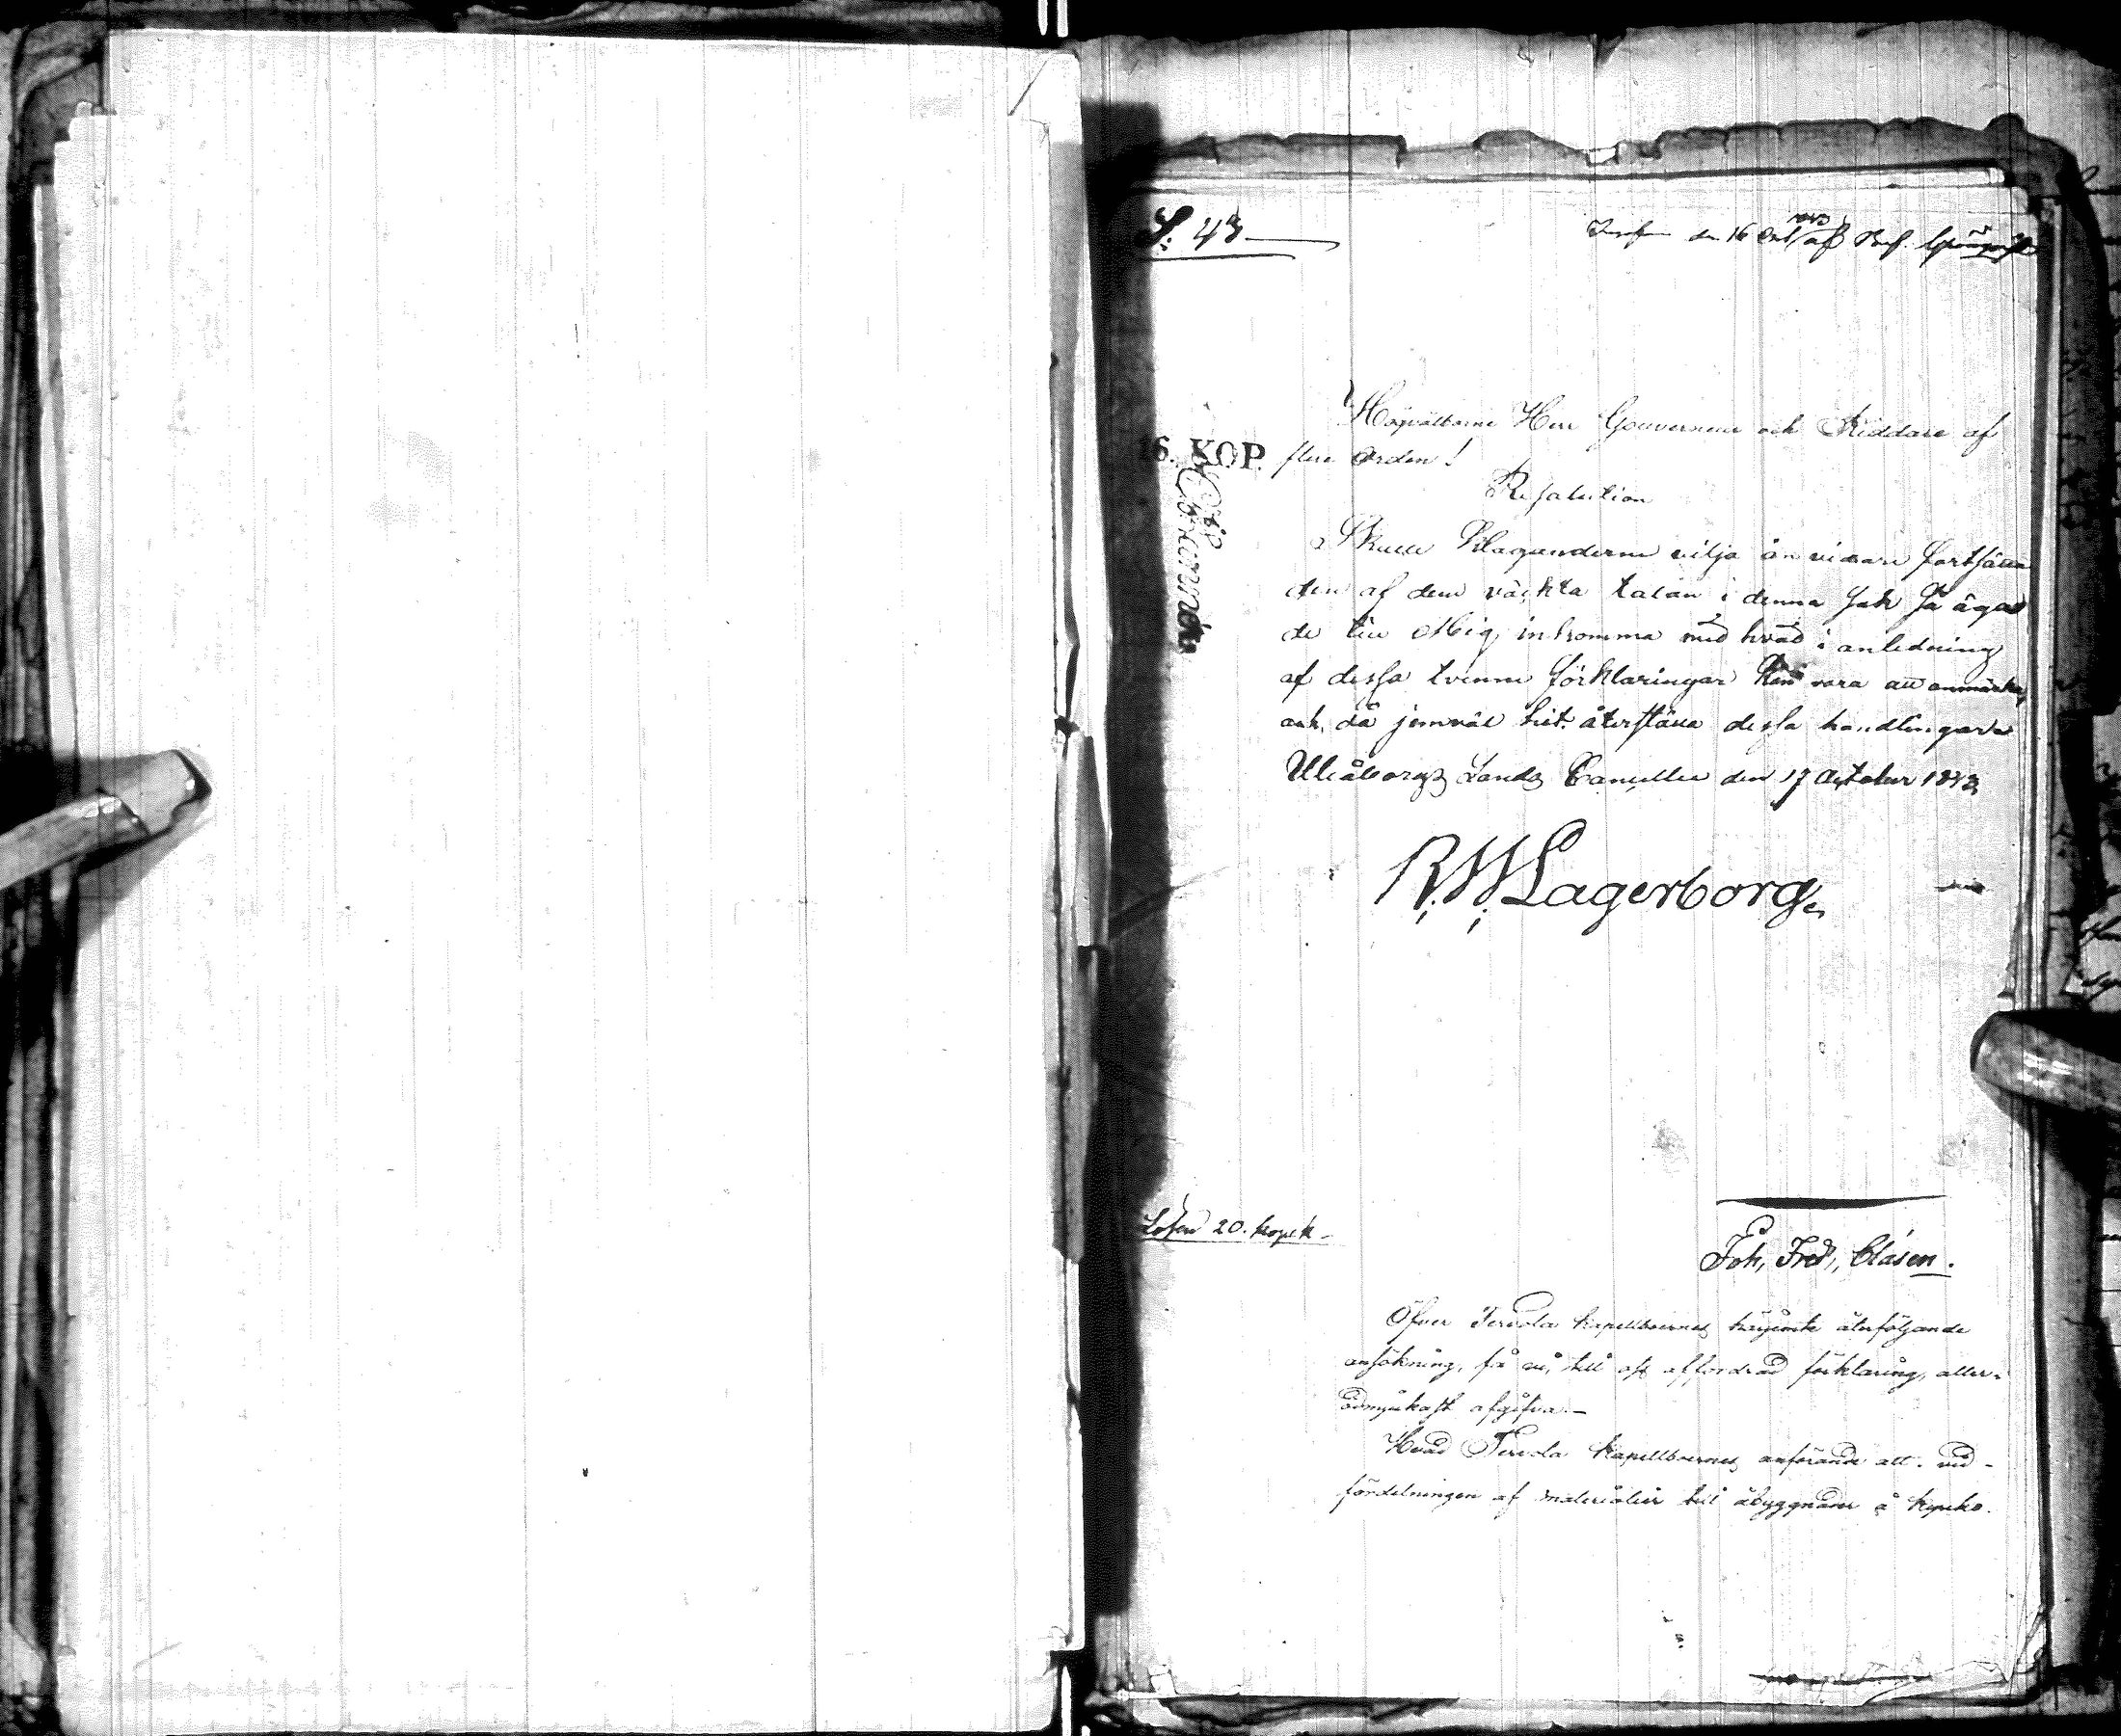 S. 43
den 16 Oct. af
Högvälborne Herr Gouverneur och Riddare af
16. KOP. flere Orden!
Resolution
Skulle Klaganderne vilja än vidare fortsätta
den af dem väckta talan i denna sak så äga
de till Mig inkomma med hvad i anledning
af dessa tvenne förklaringar kan vara att anmärka,
och då jemväl hit återställa dessa handlingar.
Uleåborgs Lands Cancellie den 17 October 1843
R.W. Lagerborg.
Lösen 20. kopek
Joh, Fred, Clasen.
Öfver Tervola kapellboernes återföljande
ansökning, få vi, till affordrad förklaring, aller-
ödmjukast afgifva.
Hvad Tervola kapellboernes anförande att vid
fördelningen af materialier till åbyggnader å kyrko-